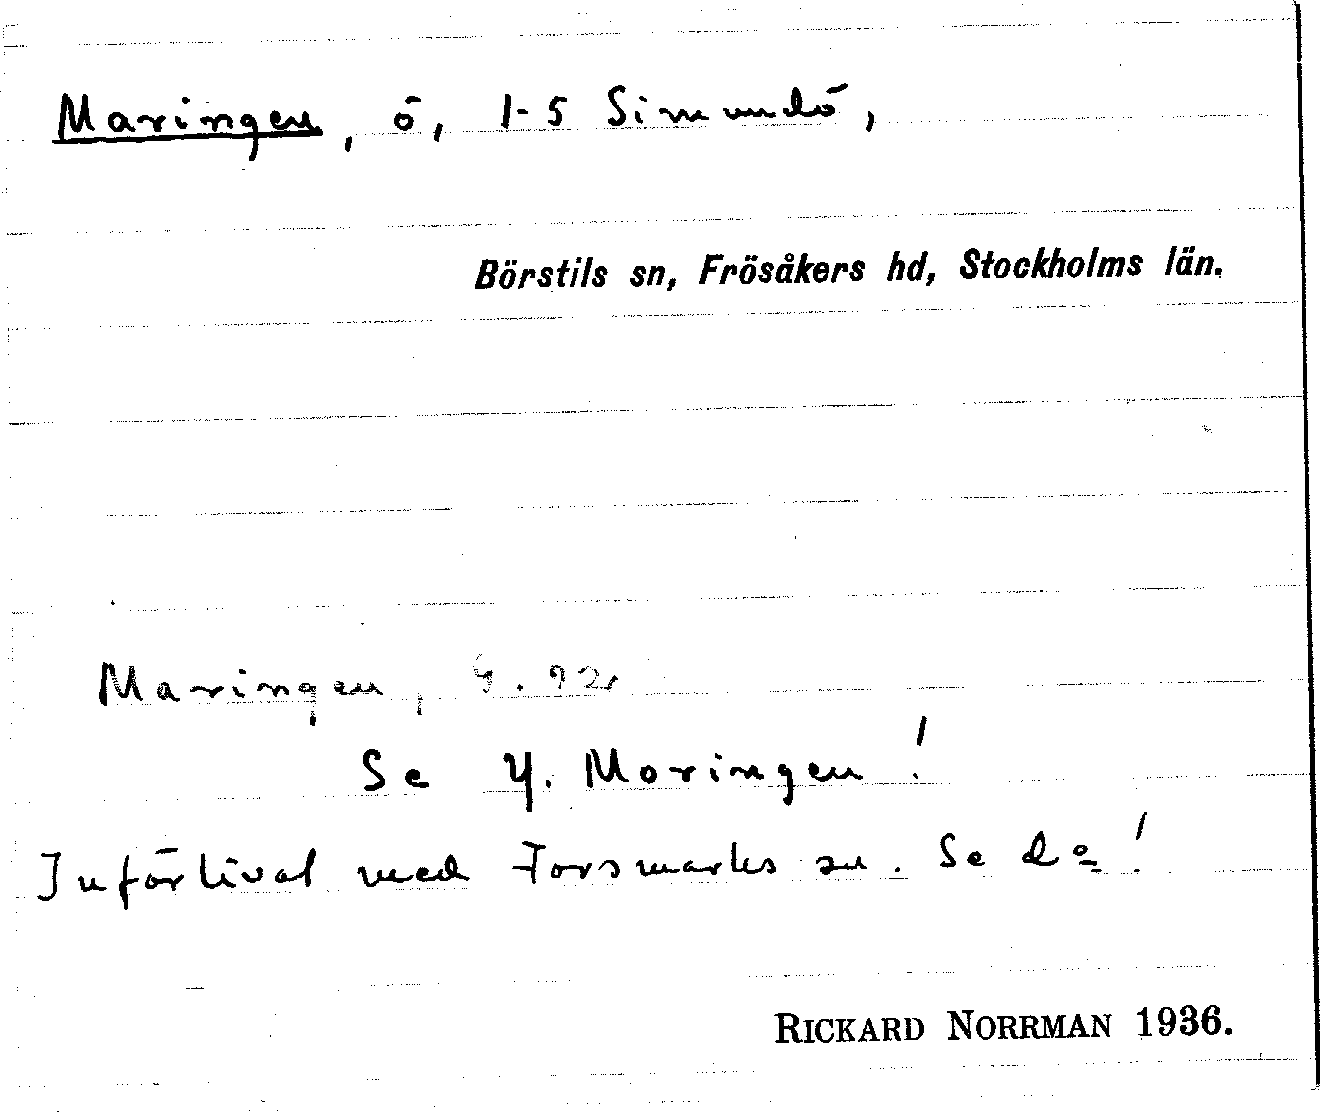 Maringen, ö, 1-5 Simundö,
Börstils sn, Frösåkers hd, Stockholms län.
Maringen,
Se Y. Moringen!
Införlivat med Forsmarks sn. Se do!
RICKARD NORRMAN 1936.